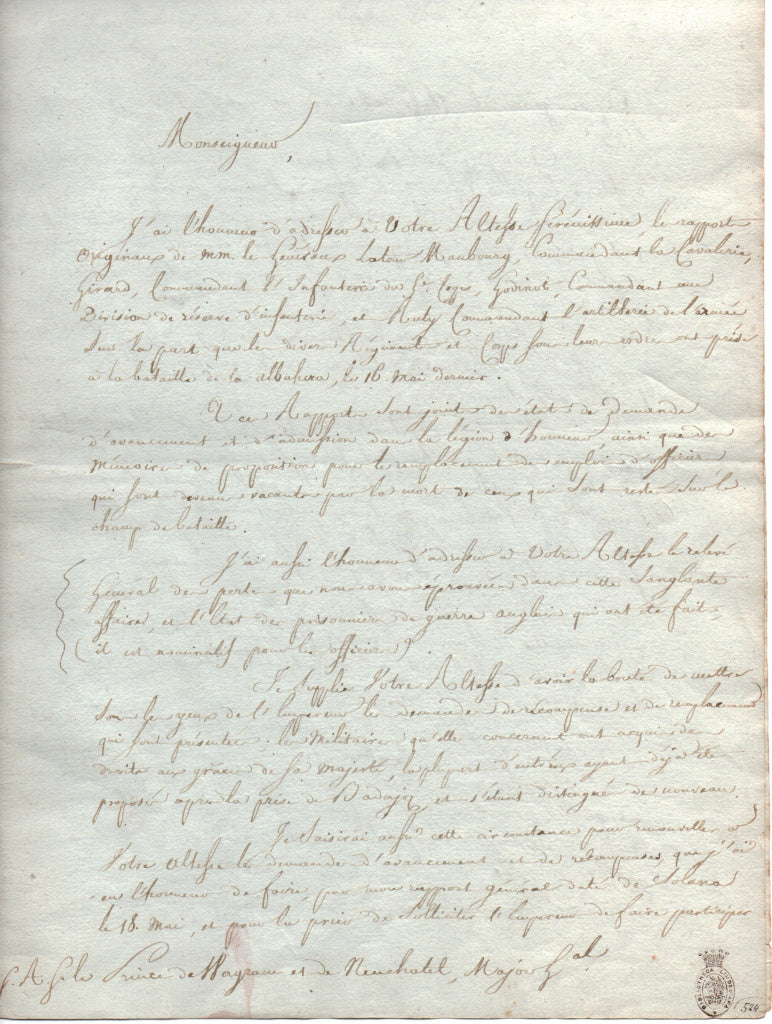 Monseigneur,
J'ai l'honneur d'adresser à Votre Altesse Sérénissime, les rapports
Originaux de mm. les Généraux Latour Maubourg, Commandant la Cavalerie,
Girard, Commandant l'Infanterie du 5e Corps, Godinot, Commandant une
Division de réserve d'infanterie, et Ruty Commandant l'artillerie de l'armée
Sur la part que les divers Régiments et Corps sous leurs ordres ont prise
à la bataille de la albuhera, le 16 Mai dernier.
à ces Rapports sont joints des états de demande
d'avancement et d'admission dans la légion d'honneur, ainsi que des
Mémoires de proposition pour le remplacement des emplois d'officiers
qui sont devenus vacants par la mort de ceux qui sont restés sur le
champ de bataille.
J'ai aussi l'honneur d'adresser à Votre Altesse le relevé
Général des pertes que nous avons éprouvées dans cette Sanglante
affaire, et l'Etat des prisonniers de guerre anglais qui ont été faits,
(il est nominatif pour les officiers).
Je Supplie Votre Altesse d'avoir la bonté de mettre
Sous les yeux de l'Empereur les demandes de récompense et de remplacement
qui sont présentées; les Militaires qu'elles concernent ont acquis des
droits aux grâces de Sa Majesté, la plupart d'entr'eux ayant déjà été
proposés après la prise de Badajoz et s'étant distingués de nouveau.
Je Saisirai aussi cette circonstance pour renouveller à
Votre Altesse les demandes d'avancement et de récompenses, que j'ai
eu l'honneur de faire, par mon rapport général daté de Solana
le 18. Mai, et pour la prier de Solliciter l'Empereur de faire participer
S. A. S. le Prince de Wagram et de Neuchatel, Major Gal.
524